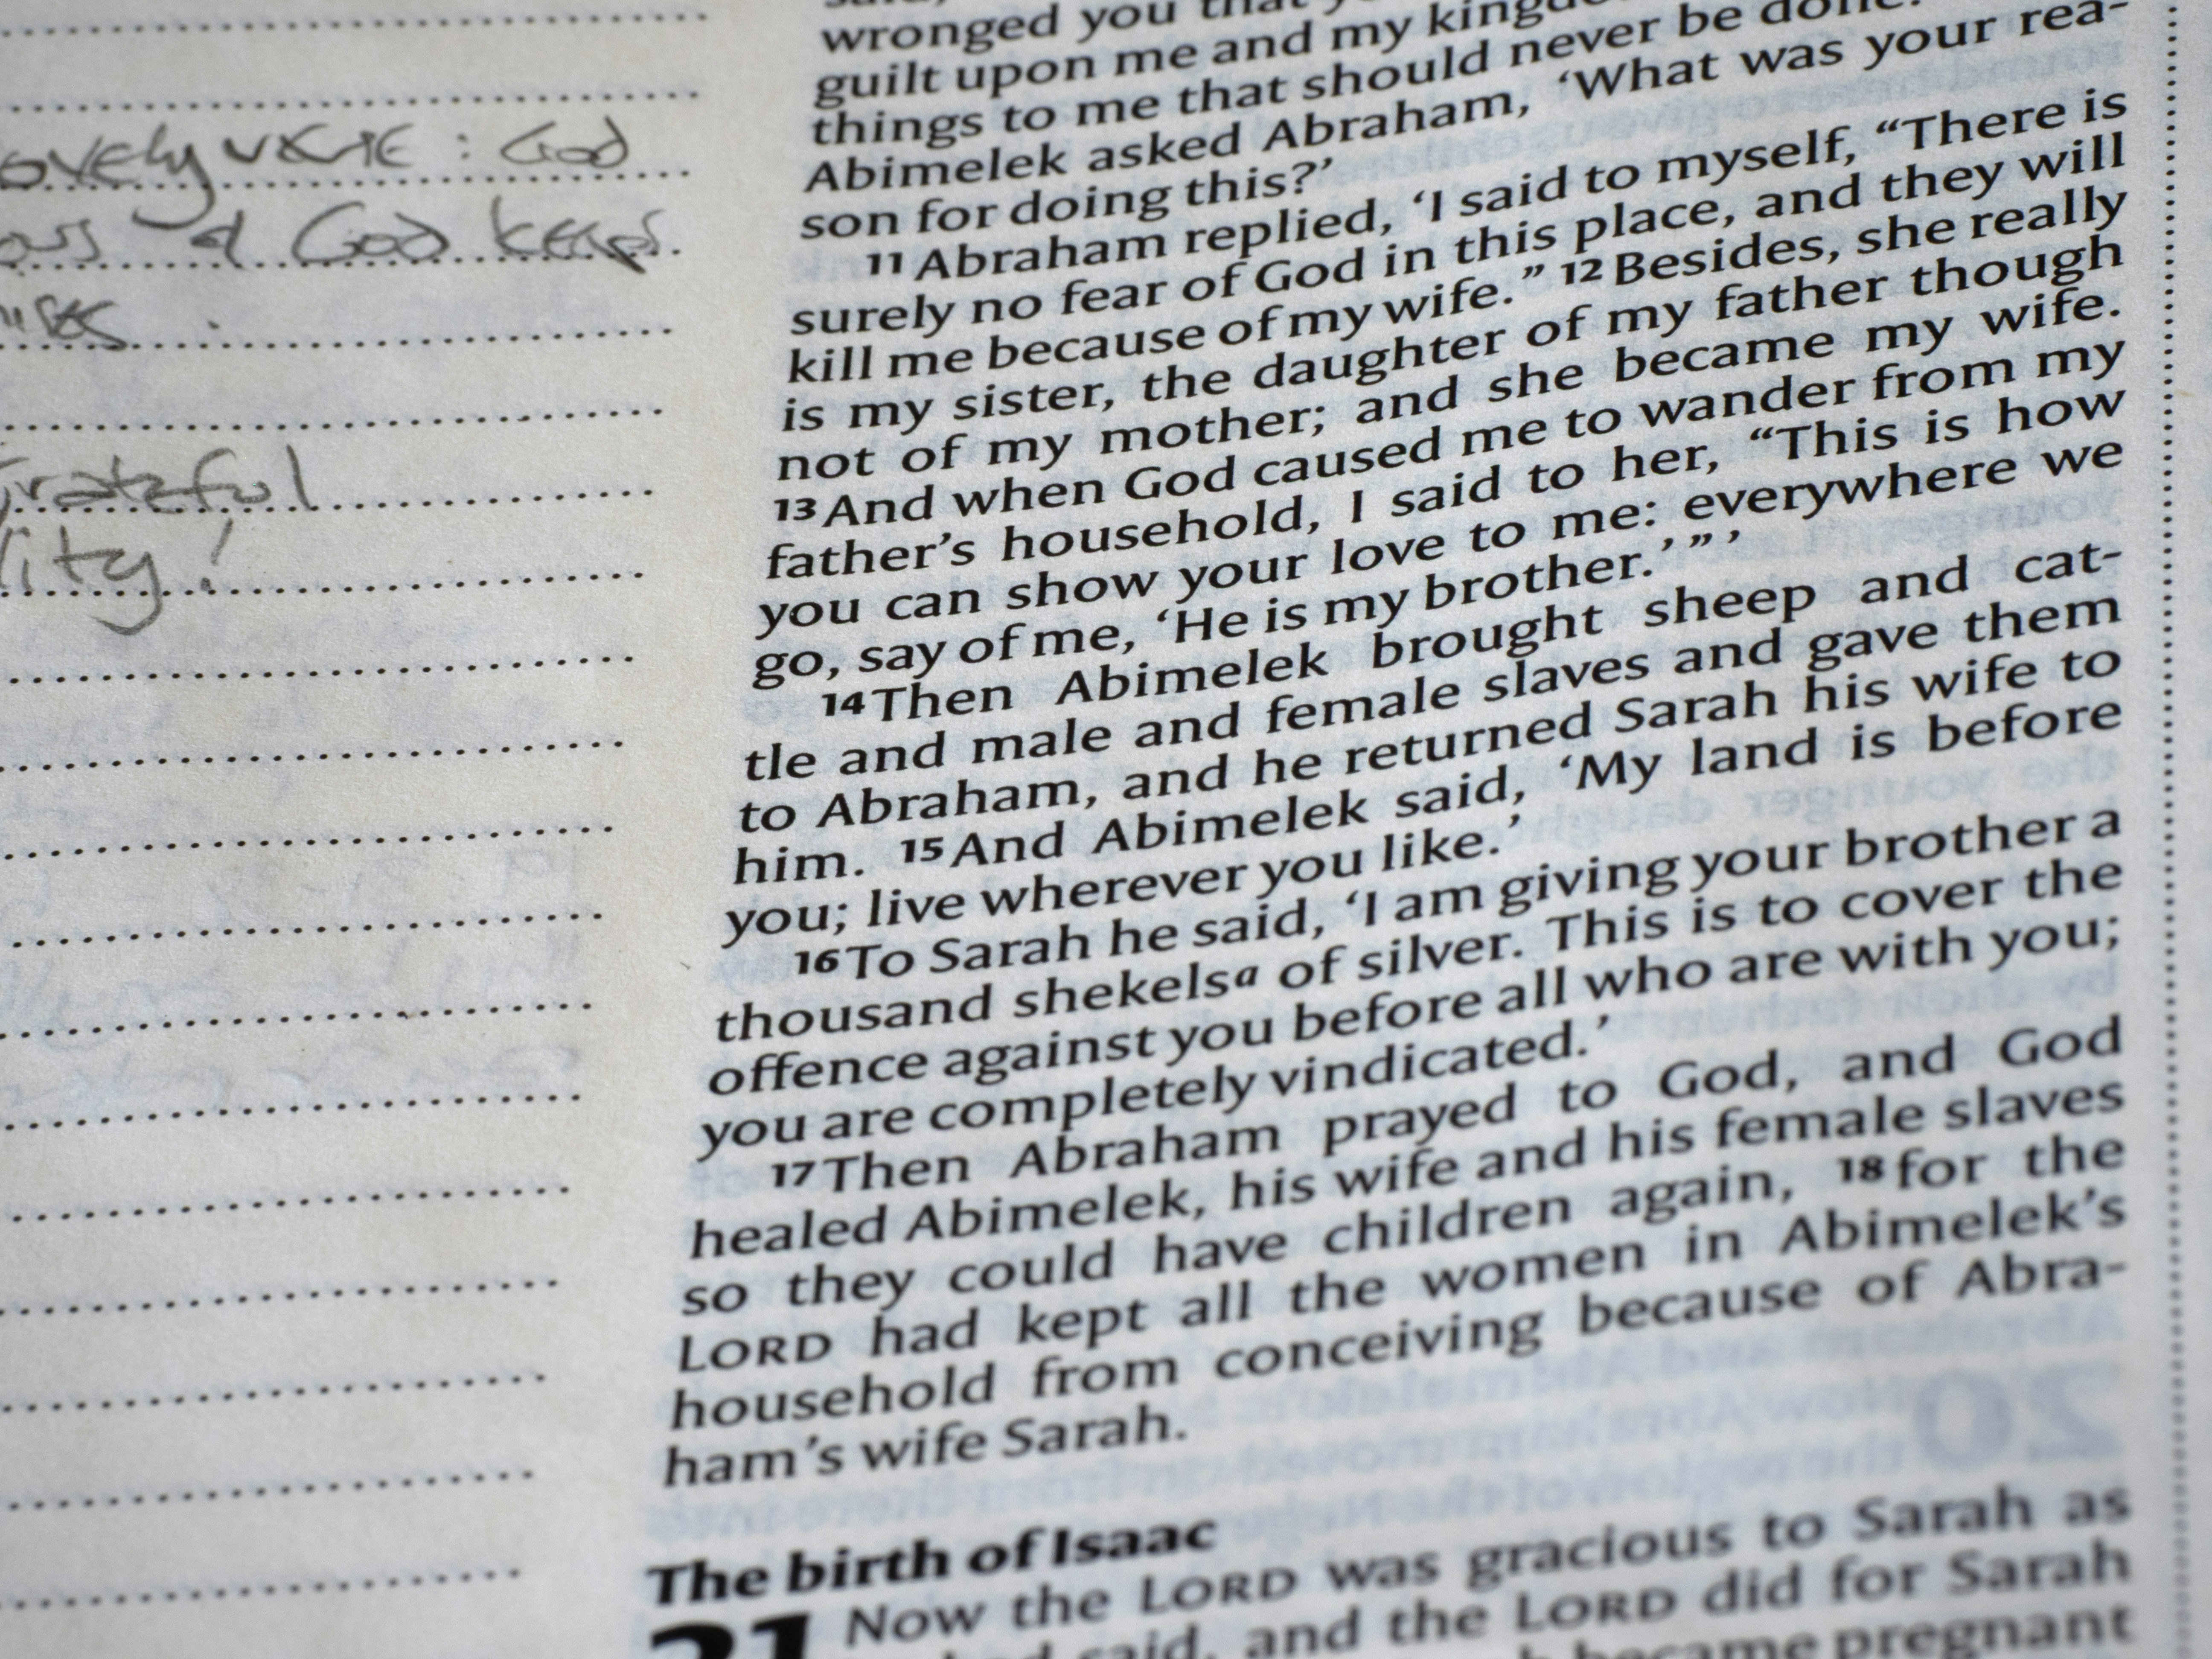 : God
God keeps
wronged you that
guilt upon me and my
things to me that should never be done.
Abimelek asked Abraham, ‘What was your rea-
son for doing this?’
11 Abraham replied, ‘I said to myself, “There is
surely no fear of God in this place, and they will
kill me because of my wife.” 12 Besides, she really
is my sister, the daughter of my father though
not of my mother; and she became my wife.
13 And when God caused me to wander from my
father’s household, I said to her, “This is how
you can show your love to me: everywhere we
go, say of me, ‘He is my brother.’ ” ’
14 Then Abimelek brought sheep and cat-
tle and male and female slaves and gave them
to Abraham, and he returned Sarah his wife to
him. 15 And Abimelek said, ‘My land is before
you; live wherever you like.’
16 To Sarah he said, ‘I am giving your brother a
thousand shekelsa of silver. This is to cover the
offence against you before all who are with you;
you are completely vindicated.’
17 Then Abraham prayed to God, and God
healed Abimelek, his wife and his female slaves
so they could have children again, 18 for the
LORD had kept all the women in Abimelek’s
household from conceiving because of Abra-
ham’s wife Sarah.
The birth of Isaac
21 Now the LORD was gracious to Sarah as
said, and the LORD did for Sarah
became pregnant